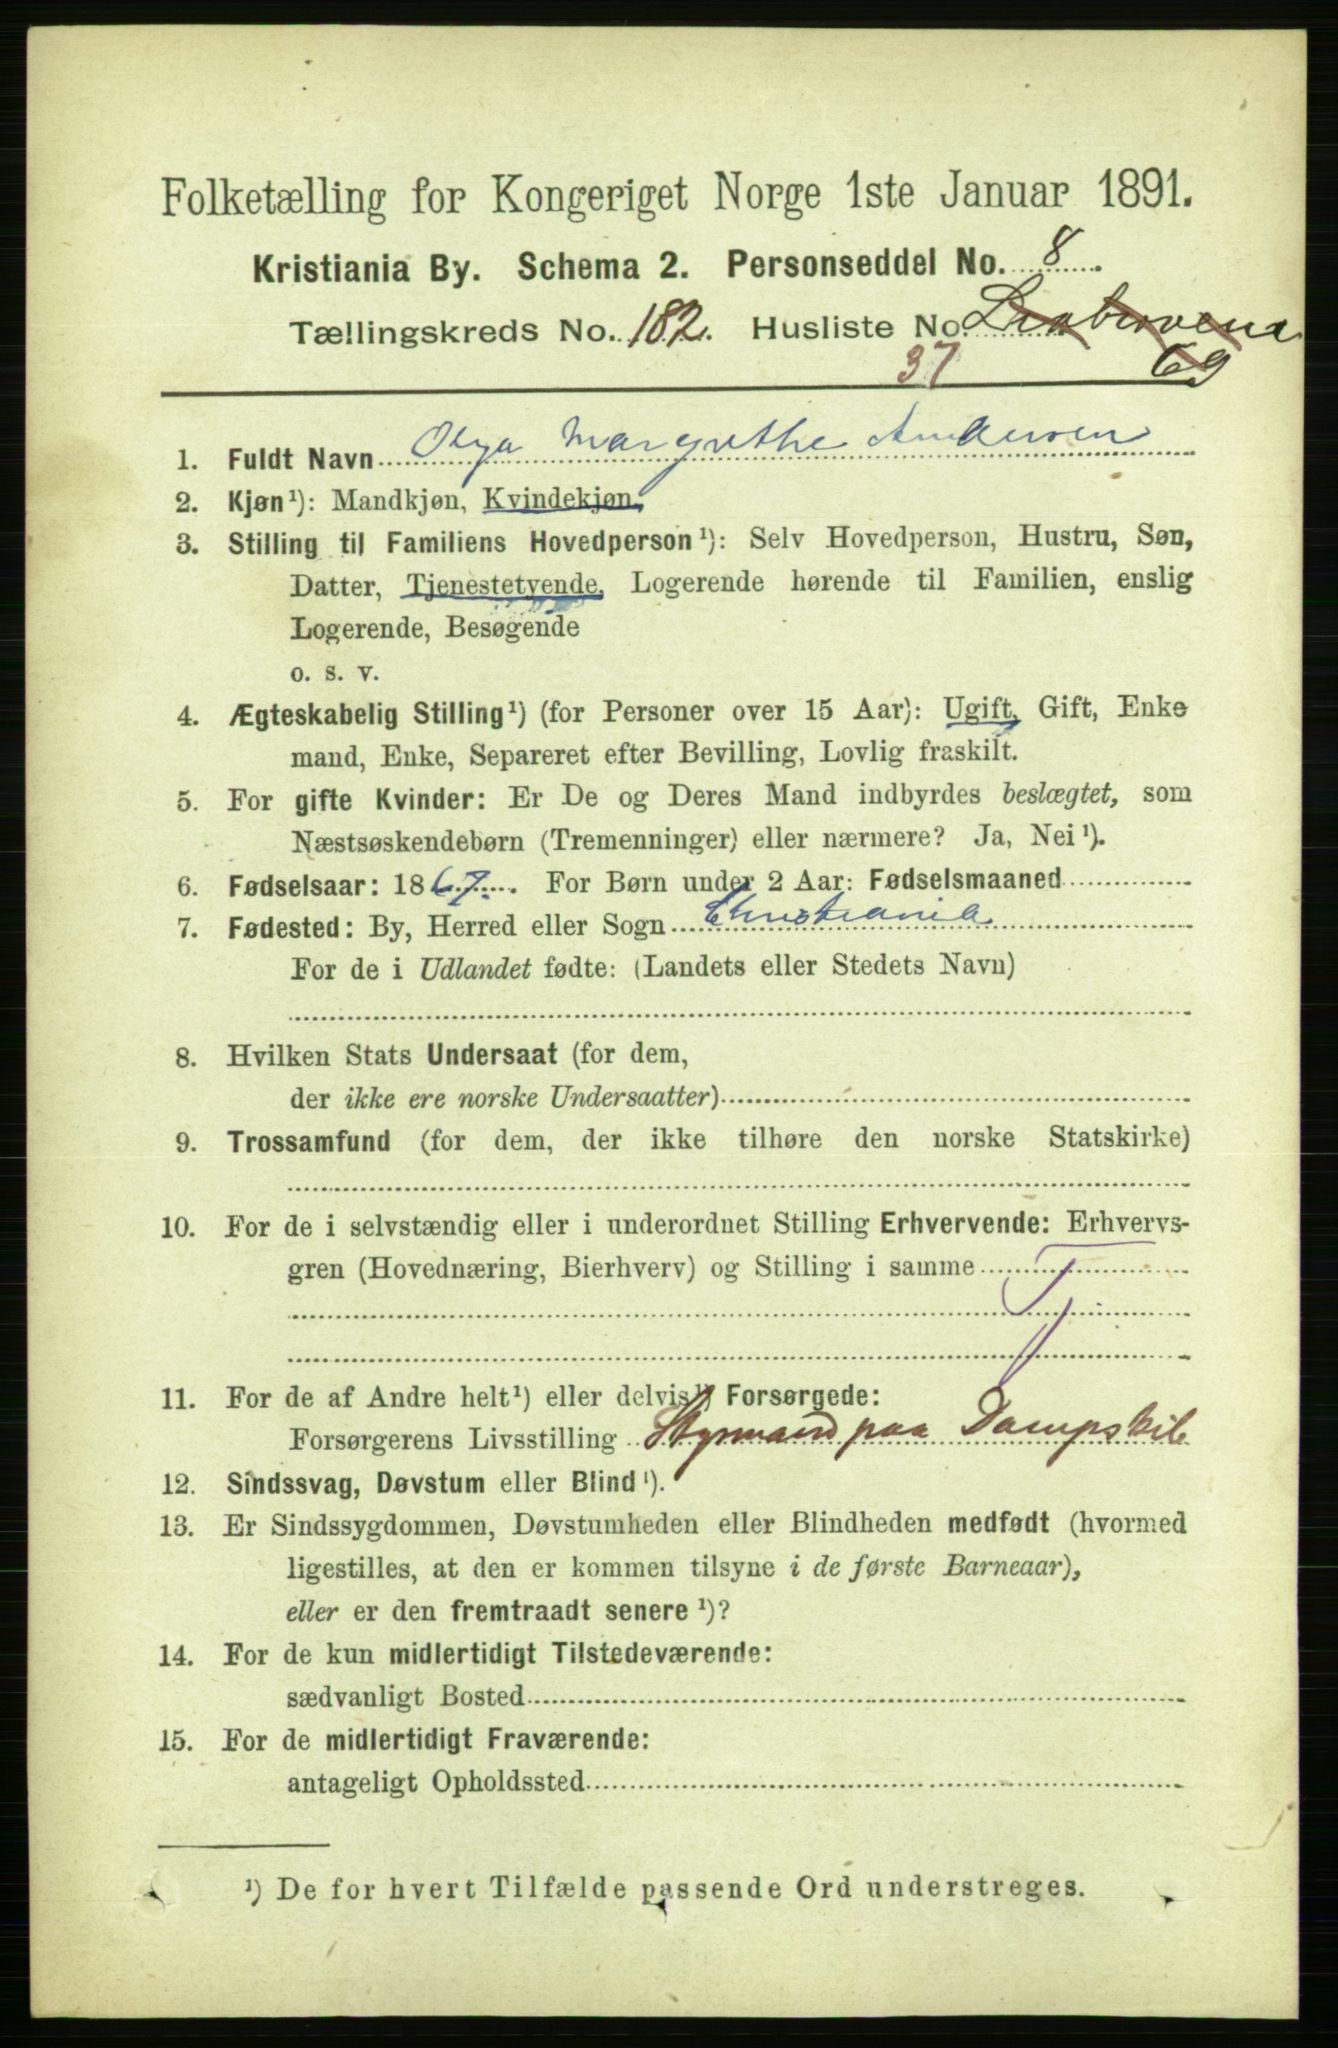 Folketælling for Kongeriget Norge 1ste Januar 1891.
Kristiania By. Schema 2. Personseddel No. 8
Tællingskreds No. 182. Husliste No.
37 69
1. Fuldt Navn Olga Margrethe Andersen
2. Kjøn¹): Mandkjøn, Kvindekjøn.
3. Stilling til Familiens Hovedperson¹): Selv Hovedperson, Hustru, Søn,
Datter, Tjenestetyende, Logerende hørende til Familien, enslig
Logerende, Besøgende
o. s. v.
4. Ægteskabelig Stilling¹) (for Personer over 15 Aar): Ugift, Gift, Enke
mand, Enke, Separeret efter Bevilling, Lovlig fraskilt.
5. For gifte Kvinder: Er De og Deres Mand indbyrdes beslægtet, som
Næstsøskendebørn (Tremenninger) eller nærmere? Ja, Nei¹).
6. Fødselsaar: 1867. For Børn under 2 Aar: Fødselsmaaned
7. Fødested: By, Herred eller Sogn Christiania
For de i Udlandet fødte: (Landets eller Stedets Navn)
8. Hvilken Stats Undersaat (for dem,
der ikke ere norske Undersaatter)
9. Trossamfund (for dem, der ikke tilhøre den norske Statskirke)
10. For de i selvstændig eller i underordnet Stilling Erhvervende: Erhvervs-
gren (Hovednæring, Bierhverv) og Stilling i samme
11. For de af Andre helt¹) eller delvis¹) Forsørgede:
Forsørgerens Livsstilling Styrmand paa Dampskib
12. Sindssvag, Døvstum eller Blind¹).
13. Er Sindssygdommen, Døvstumheden eller Blindheden medfødt (hvormed
ligestilles, at den er kommen tilsyne i de første Barneaar),
eller er den fremtraadt senere¹)?
14. For de kun midlertidigt Tilstedeværende:
sædvanligt Bosted
15. For de midlertidigt Fraværende:
antageligt Opholdssted
¹) De for hvert Tilfælde passende Ord understreges.